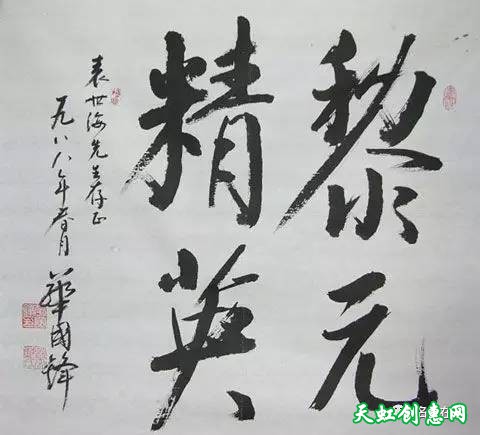 黎元
精英
袁世海先生存正
一九八八年春月
華國鋒
天虹创意网